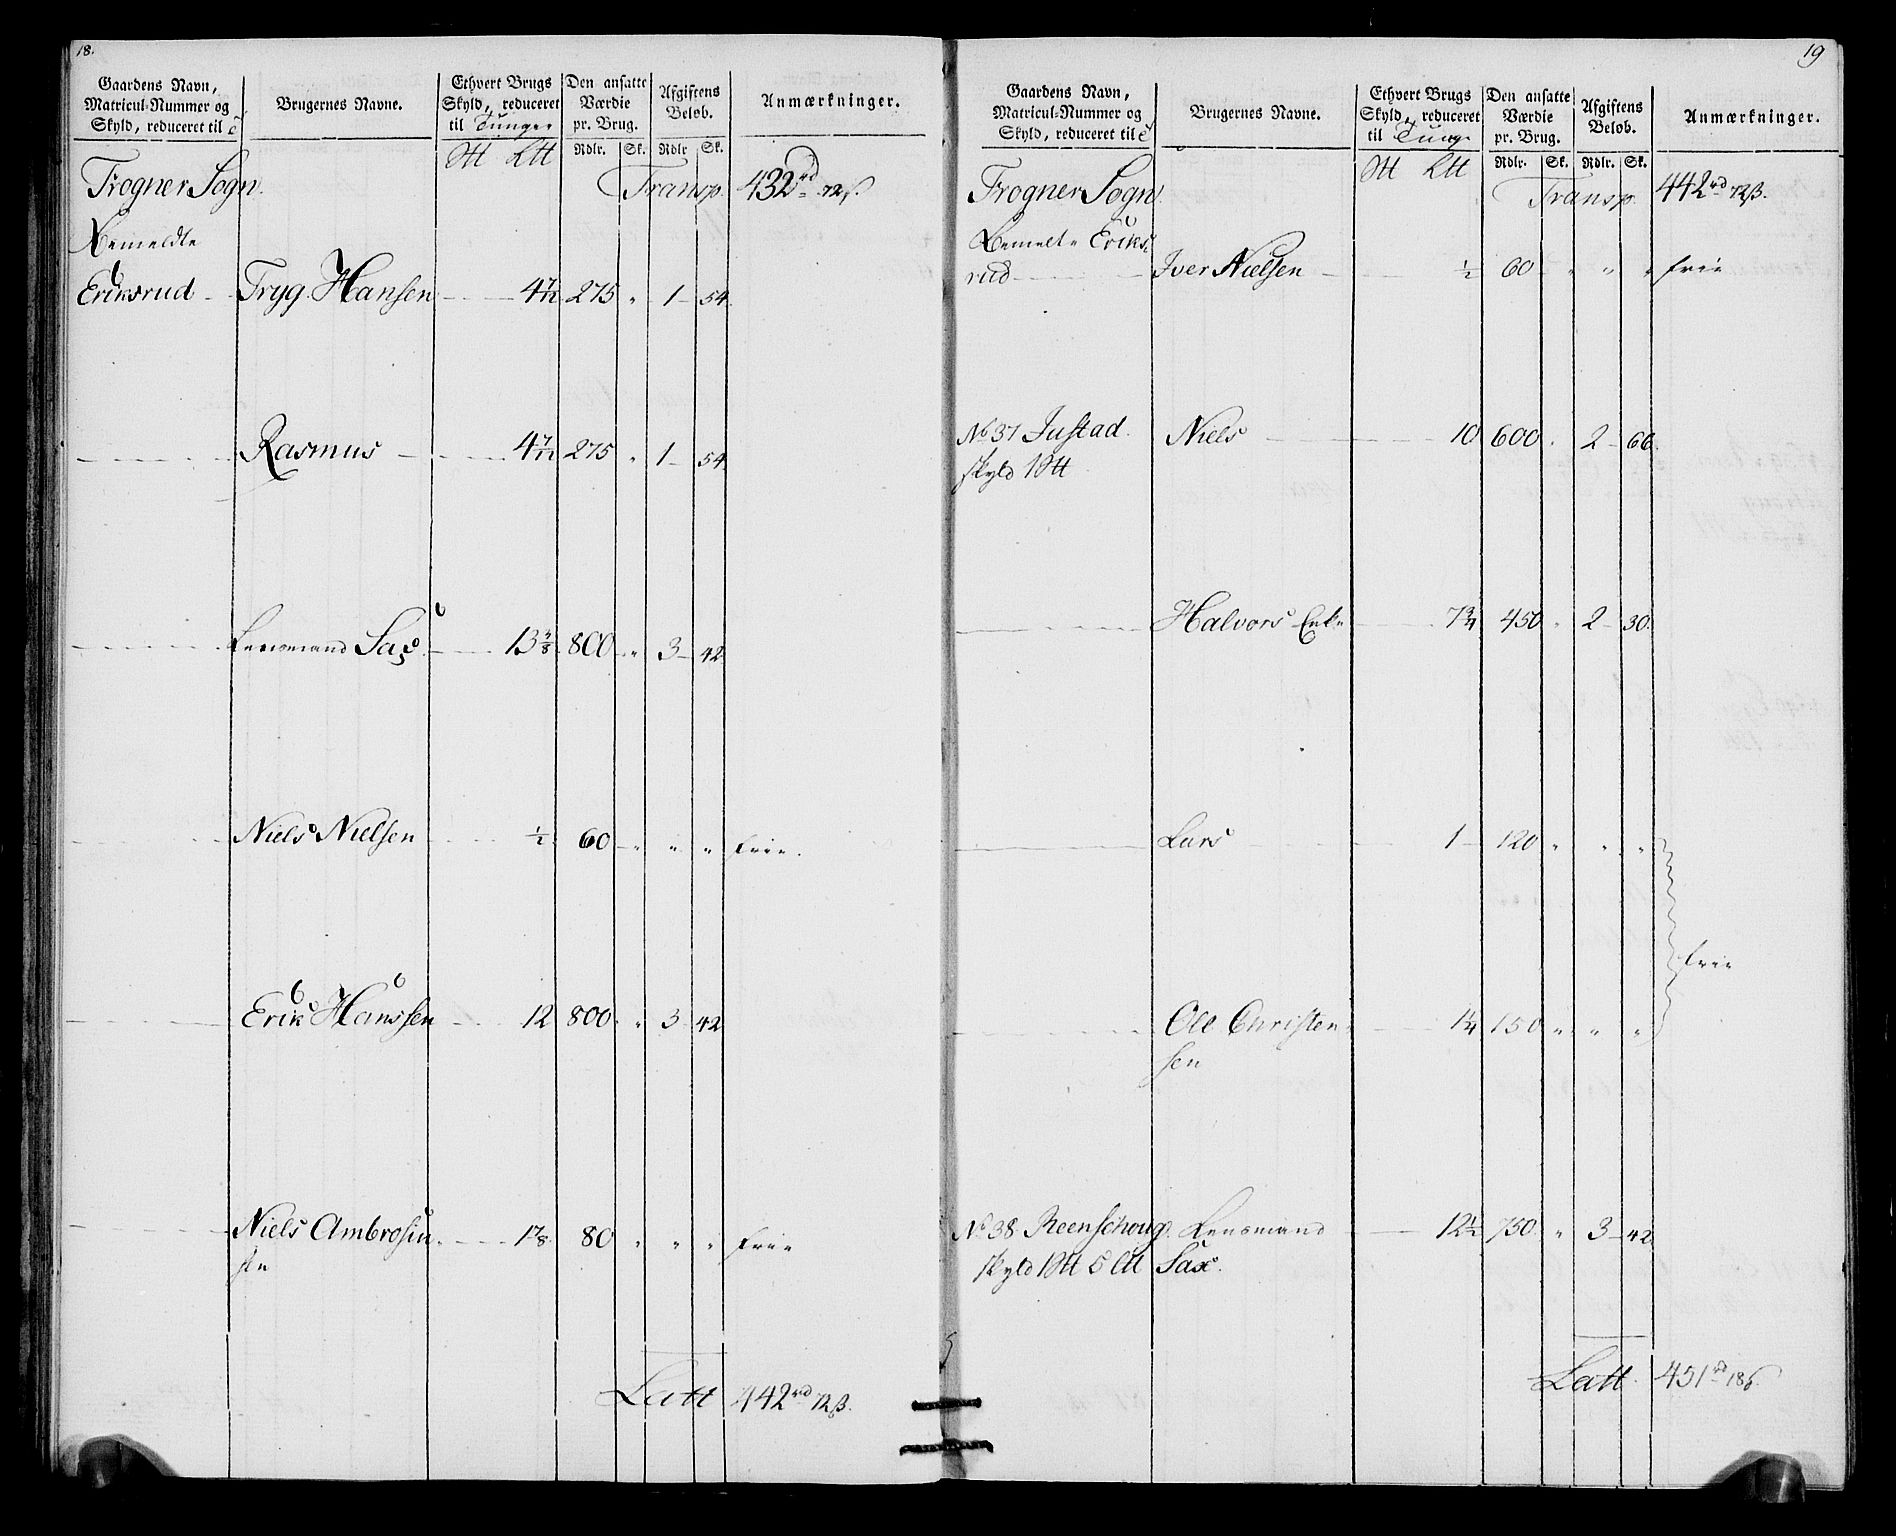 18.
Gaardens Navn,
Matricul-Nummer og
Skyld, reduceret til
Brugernes Navne.
Ethvert Brugs
Skyld, reduceret
til Tunge
Den ansatte
Værdie
pr. Brug.
Rdlr. Sk.
Afgiftens
Beløb.
Rdlr Sk.
Anmærkninger.
Frogner Sogn. Transp. 432 rd 72 ß.
Bemeldte
Eriksrud - Tryg Hansen - 4 7/12 275 " 1 - 54
Rasmus - 4 7/12 275 " 1 - 54
Lensmand Sax - 13 3/8 800 " 3 - 42
Niels Nielsen - 1/2 60 " " " frie.
Erik Hanssen - 12 800 " 3 - 42
Niels Ambrosiu - 1 7/8 80 " " " frie
sen
Latt 442 rd 72 ß.
19
Gaardens Navn,
Matricul-Nummer og
Skyld, reduceret til
Brugernes Navne.
Ethvert Brugs
Skyld, reduceret
til Tunge
Den ansatte
Værdie
pr. Brug.
Rdlr. Sk.
Afgiftens
Beløb.
Rdlr. Sk.
Anmærkninger.
Frogner Sogn. Transp. 442 rd 72 ß.
Bemelte Eriks
rud - Iver Nielsen - 1/2 60 " " " frie
No 37 Justad. Niels - 10 600 " 2 - 66.
skyld 1
Halvors Enke - 7 3/4 450 " 2 - 30.
Lars - 1 - 120 " " "
frie
Ole Christen - 1 1/4 150 " " "
sen
No 38 Reenschoug. Lensmand - 12 1/2 750 " 3 - 42
skyld 1 5 Sax.
Latt. 451 rd 18 ß.